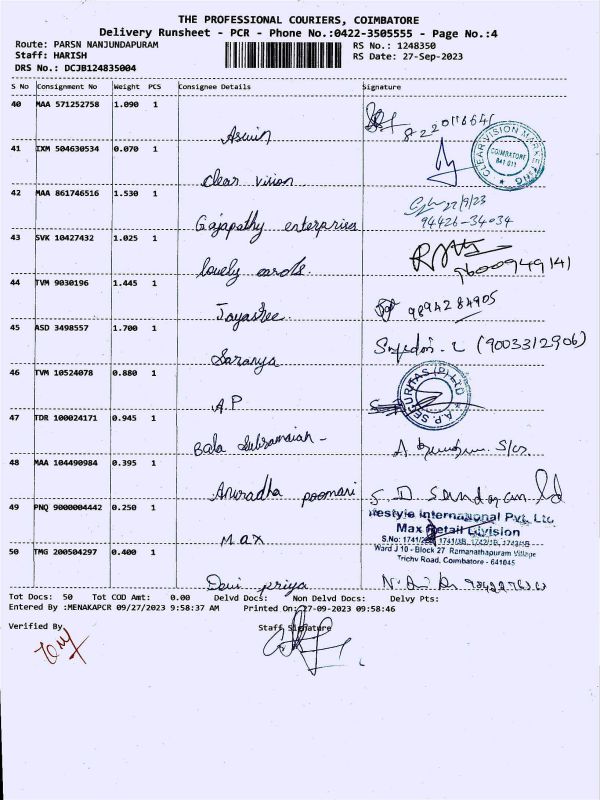 THE PROFESSIONAL COURIERS, COIMBATORE
Delivery Runsheet - PCR - Phone No.:0422-3505555 - Page No.:4
Route: PARSN NANJUNDAPURAM RS No.: 1248350
Staff: HARISH RS Date: 27-Sep-2023
DRS No.: DCJB124835004
S No Consignment No Weight PCS Consignee Details Signature
40 MAA 571252758 1.090 1
Aswin
41 IXM 504630534 0.070 1
CLEAR VISION MARKETING
COIMBATORE
641 011
clear vision
42 MAA 861746516 1.530 1
27/9/23
Gajapathy enterprises 94426-34034
43 SVK 10427432 1.025 1
lovely cards. 9600949141
44 TVM 9030196 1.445 1
Jayashree. 9894284905
45 ASD 3498557 1.700 1
(9003312906)
Saranya
46 TVM 10524078 0.880 1
A.P. SEGURITAS (P) LTD
A.P
47 TDR 100024171 0.945 1
Bala Subramaiah -
48 MAA 104490984 0.395 1
Anuradha poomari
49 PNQ 9000004442 0.250 1
Lifestyle International Pvt. Ltd
Max Retail Division
Max
Ward J 10 - Block 27 Ramanathapuram Village
Trichy Road, Coimbatore - 641045
50 TMG 200504297 0.400 1
Devi priya
Tot Docs: 50 Tot COD Amt: 0.00 Delvd Docs: Non Delvd Docs: Delvy Pts:
Entered By :MENAKAPCR 09/27/2023 9:58:37 AM Printed On:27-09-2023 09:58:46
Verified By Staff Signature